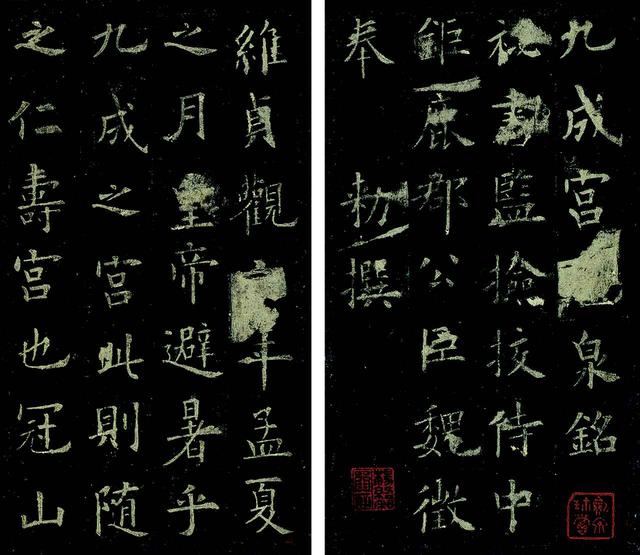 九成宮泉銘
秘書監撿挍侍中
鉅鹿郡公臣魏徵
奉 勑撰
維貞觀年孟夏
之月皇帝避暑乎
九成之宮此則隨
之仁壽宮也冠山